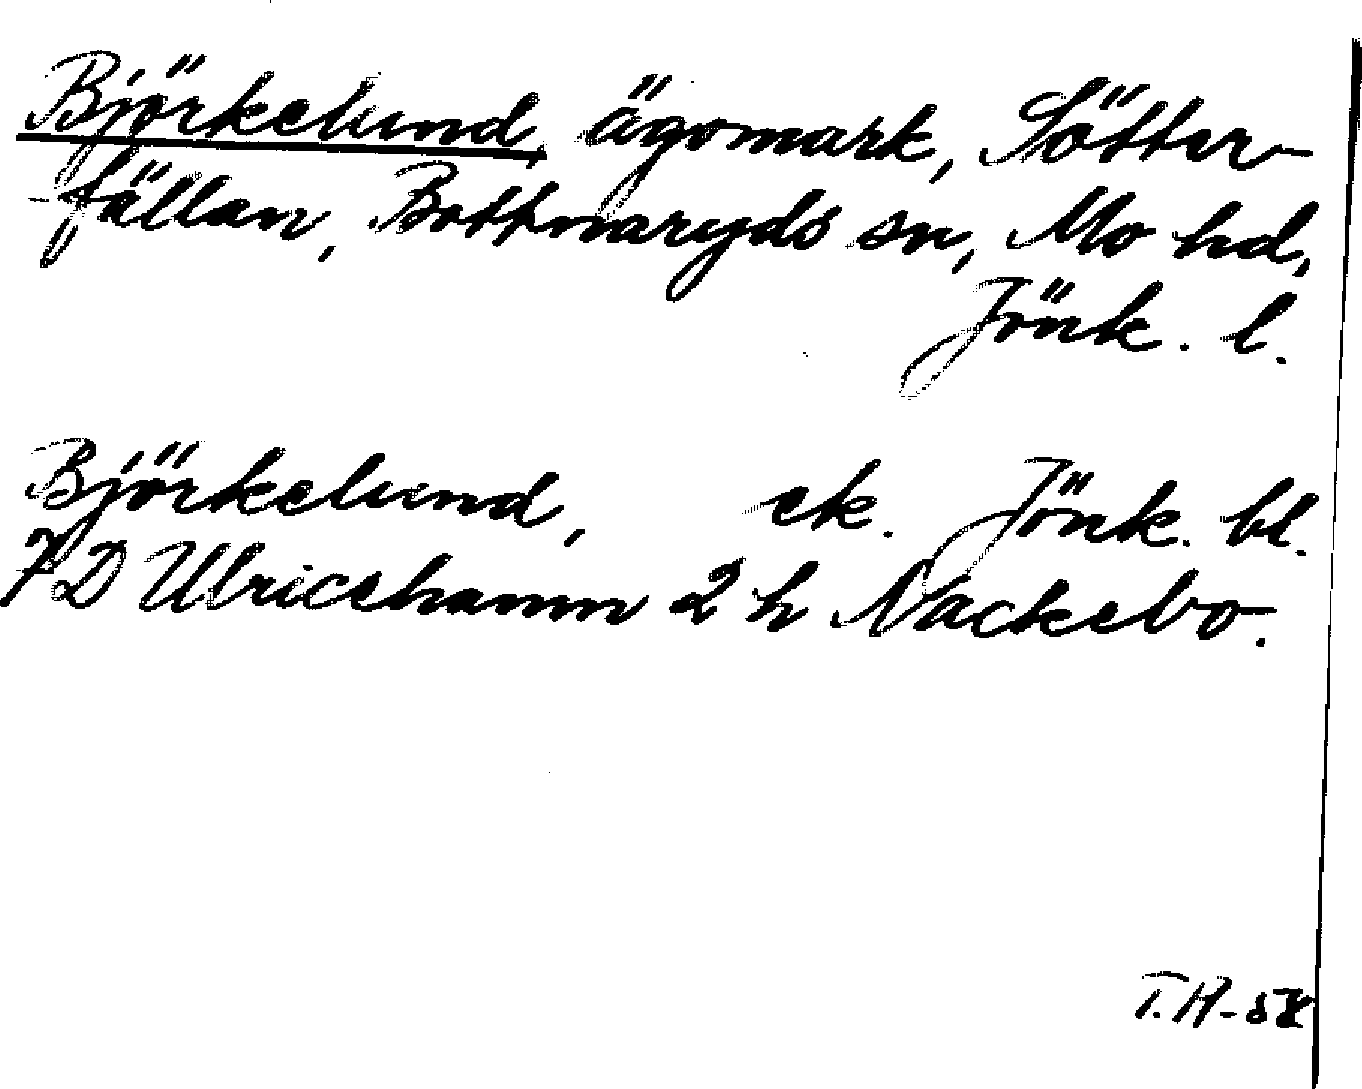 Björkelund, ägomark, Sötter-
fällan, Bottnaryds sn, Mo hd,
Jönk. l.
Björkelund, ek. Jönk. bl.
7D Ulricehamn 2 h Nackebo.